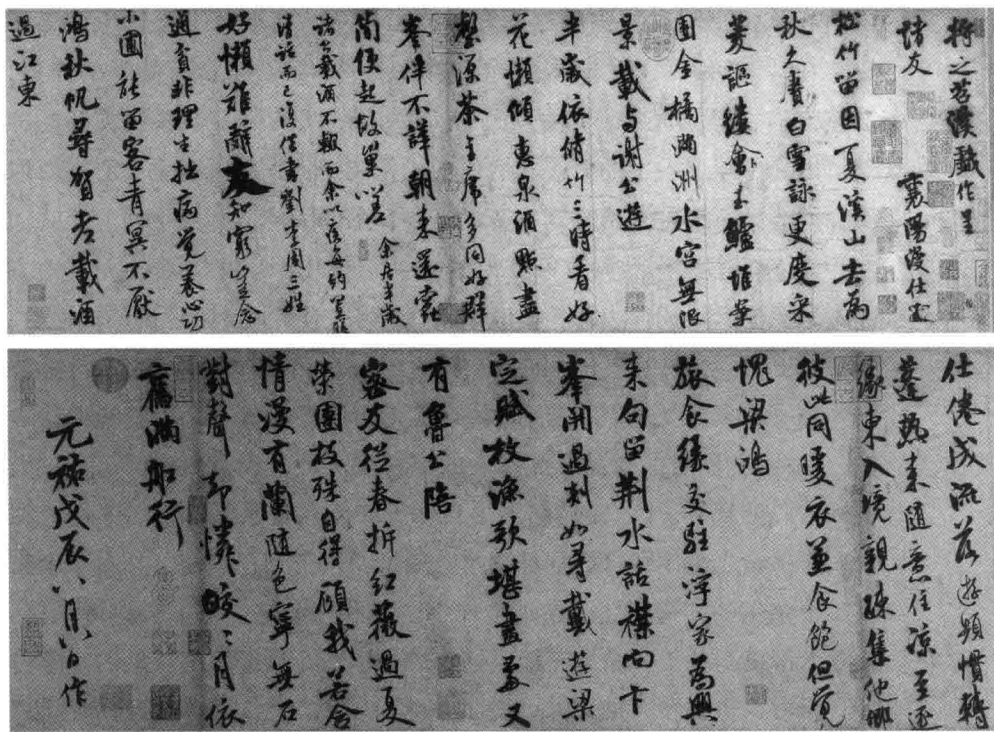 將之苕溪戲作呈
諸友 襄陽漫仕黻
松竹留因夏溪山去為
秋久賡白雪詠更度采
菱謳縷會玉鱸堆案
團金橘滿洲水宮無限
景載與謝公遊
半歲依脩竹三時看好
花懶傾惠泉酒點盡
壑源茶主席多同好群
峯伴不譁朝来還蠹
簡便起故巢嗟 余居半歲
諸公載酒不輟而余以疾每約置膳
清話而已復借書劉李周三姓
好懶難辭友知窮豈念
通貧非理生拙病覺養心功
小圃能留客青冥不厭
鴻秋帆尋賀老載酒
過江東
仕倦成流落遊頻慣轉
蓬熱来隨意住涼至逐
緣東入境親疎集他鄉
彼此同暖衣兼食飽但覺
愧梁鴻
旅食緣交駐浮家為興
来句留荊水話襟向卞
峯開過剡如尋戴遊梁
定賦枚漁歌堪畫處又
有魯公陪
密友從春拆紅薇過夏
榮團枝殊自得顧我若含
情漫有蘭隨色寧無石
對聲却憐皎々月依
舊滿船行
元祐戊辰八月八日作